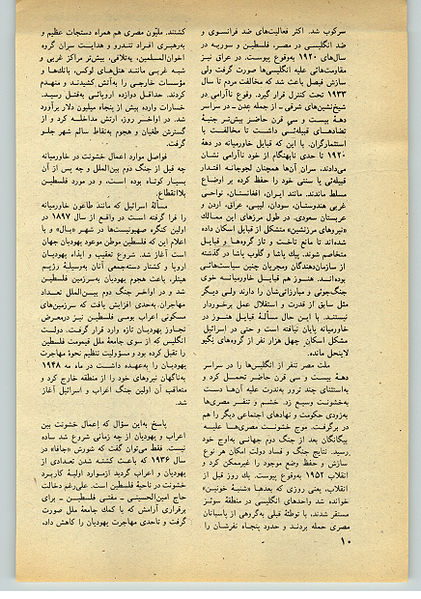 سرکوب شد. اکثر فعالیت‌های ضد فرانسوی و
ضد انگلیسی در مصر، فلسطین و سوریه در
سال‌های ۱۹۲۰ به‌وقوع پیوست. در عراق نیز
مقاومت‌هائی علیه انگلیسی‌ها صورت گرفت ولی
سازش فیصل باعث شد که مخالفت مردم تا سال
۱۹۳۳ تحت کنترل قرار گیرد. وقوع ناآرامی در
شیخ‌نشین‌های شرقی ـ از جمله عدن ـ در سراسر
دههٔ بیست و سی قرن حاضر بیش‌تر جنبهٔ
تضادهای قبیله‌ئی داشت تا مخالفت با
استعمارگران. با این که قبایل خاورمیانه در دههٔ
۱۹۲۰ تا حدی نابهنگام از خود ناآرامی نشان
می‌دادند، سران آن‌ها همچنان لجوجانه اقتدار
قبیله‌ئی یا سنتی خود را حفظ کرده بر اوضاع
مسلط ماندند. مانند ایران، افغانستان، نواحی
غربی هندوستان، سودان، لیبی، عراق، اردن و
عربستان سعودی. در طول مرزهای این ممالک
«نیروهای مرزنشین» متشکل از قبایل اسکان داده
شده‌اند تا مانع تاخت و تاز گروه‌ها و قبایل
متخاصم شوند. پیک پاشا و گلوب پاشا در گذشته
از سازمان‌دهندگان ومجریان چنین سیاست‌هائی
بوده‌اند. هنوز هم قبایل خاورمیانه خوی
جنگ‌جوئی و مبارزاتی‌شان را دارند ولی دیگر
مثل سابق از قدرت و استقلال عمل برخوردار
نیستند. با این حال مسألهٔ قبایل هنوز در
خاورمیانه پایان نیافته است و حتی در اسرائیل
مشکل اسکان چهل هزار نفر از گروه‌های یگیو
لاینحل مانده.
ملت مصر تنفر از انگلیسی‌ها را در سراسر
دههٔ بیست و سی قرن حاضر تحمل کرد و
به‌استثنای چند ترور به‌ندرت علیه آن‌ها دست
به‌خشونت وسیع زد. خشم و تنفر مصری‌ها
به‌زودی حکومت و نهادهای اجتماعی دیگر را هم
در برگرفت. موج خشونت مصری‌ها علیه
بیگانگان بعد از جنگ دوم جهانی به‌اوج خود
رسید. نتایج جنگ و فساد دولت امکان هر نوع
سازش و حفظ وضع موجود را غیرممکن کرد و
انقلاب ۱۹۵۲ به‌وقوع پیوست. یک روز قبل از
انقلاب، یعنی روزی که بعدها «شنبهٔ خونین»
خوانده شد واحدهای انگلیسی در منطقهٔ سوئز
مستقر شدند، با توطئهٔ قبلی به‌گروهی از پاسبانان
مصری حمله بردند و حدود پنجاه نفرشان را
کشتند. ملیون مصری هم همراه دستجات عظیم و
به‌رهبری افراد تندرو و هدایت سران گروه
اخوان‌المسلمین، به‌تلافی، بیش‌تر مراکز غربی و
شبه غربی مانند هتل‌های لوکس، بانک‌ها و
مؤسسات خارجی را به‌آتش کشیدند و منهدم
کردند. حداقل دوازده اروپائی به‌قتل رسید.
خسارات وارده بیش از پنجاه میلیون دلار برآورد
شد. در اواخر روز، ارتش مداخله کرد و از
گسترش طغیان و هجوم به‌نقاط سالم شهر جلو
گرفت.
فواصل موارد اعمال خشونت در خاورمیانه
چه قبل از جنگ دوم بین‌الملل و چه پس از آن
بسیار کوتاه بوده است، و در مورد فلسطین
بلاانقطاع.
مسألهٔ اسرائیل که مانند طاعون خاورمیانه
را فرا گرفته است در واقع از سال ۱۸۹۷ در
اولین کنگره صهیونیست‌ها در شهر «بال» و با
اعلام این که فلسطین موطن موعود یهودیان جهان
است آغاز شد. شروع تعقیب و ایذاء یهودیان
اروپا و کشتار دسته‌جمعی آنان به‌وسیلهٔ رژیم
هیتلر، باعث هجوم یهودیان به‌سرزمین فلسطین
شد و در اواخر جنگ دوم بین‌الملل تعداد
مهاجران به‌حدی افزایش یافت که سرزمین‌های
مسکونی اعراب بومی فلسطین نیز درمعرض
تجاوز یهودیان تازه وارد قرار گرفت. دولت
انگلیس که از سوی جامعهٔ ملل قیمومت فلسطین
را تقبل کرده بود و مسؤولیت تنظیم نحوهٔ مهاجرت
یهودیان را به‌عهده داشت در ماه مه ۱۹۴۸
به‌ناگهان نیروهای خود را از منطقه خارج کرد و
متعاقب آن اولین جنگ اعراب و اسرائیل آغاز
شد.
پاسخ به‌این سؤال که اِعمال خشونت بین
اعراب و یهودیان از چه زمانی شروع شد ساده
نیست. فقط می‌توان گفت که شورش «جافا» در
سال ۱۹۳۶ که باعث کشته شدن تعدادی از
یهودیان و اعراب گردید ازموارد اولیهٔ کاربرد
خشونت در ناحیهٔ فلسطین است. علی‌رغم دخالت
حاج امین‌الحسینی ـ مفتی فلسطین ـ برای
برقراری آرامش که با کمک جامعهٔ ملل صورت
گرفت و تاحدی مهاجرت یهودیان را کاهش داده
۱۰